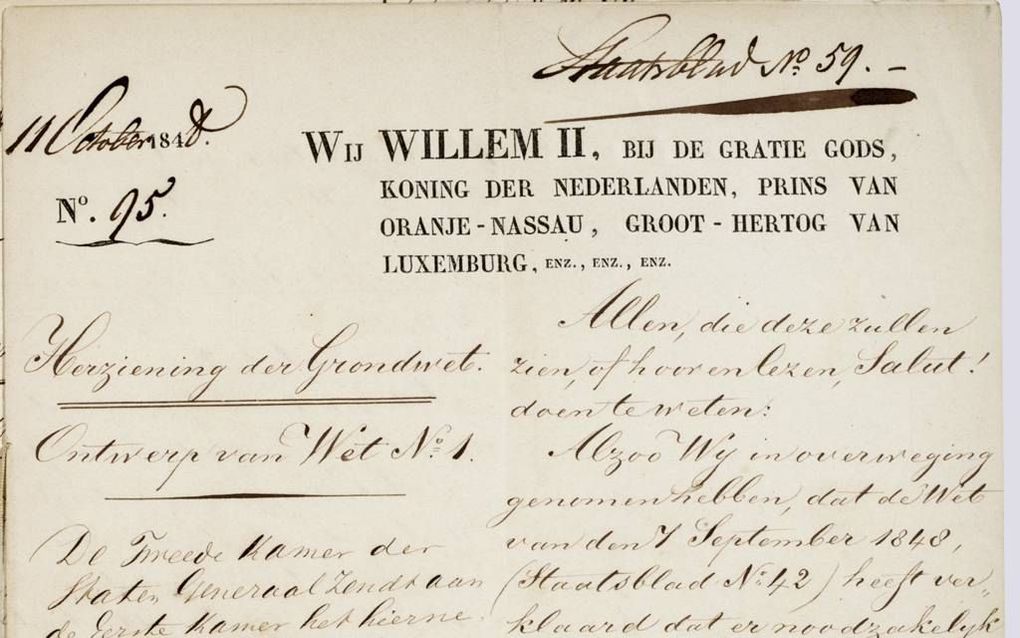 Staatsblad No. 59. –
11 October 1848.
No. 95.
Wij WILLEM II, BIJ DE GRATIE GODS,
KONING DER NEDERLANDEN, PRINS VAN
ORANJE-NASSAU, GROOT-HERTOG VAN
LUXEMBURG, ENZ., ENZ., ENZ.
Herziening der Grondwet.
Ontwerp van Wet No. 1.
De Tweede Kamer der
Staten Generaal zendt aan
de Eerste Kamer het hierne
Allen, die deze zullen
zien, of hooren lezen, Salut!
doen te weten:
Alzoo Wij in overweging
genomen hebben, dat de Wet
van den 7 September 1848,
(Staatsblad No. 42) heeft ver„
klaard dat er noodzakelyk